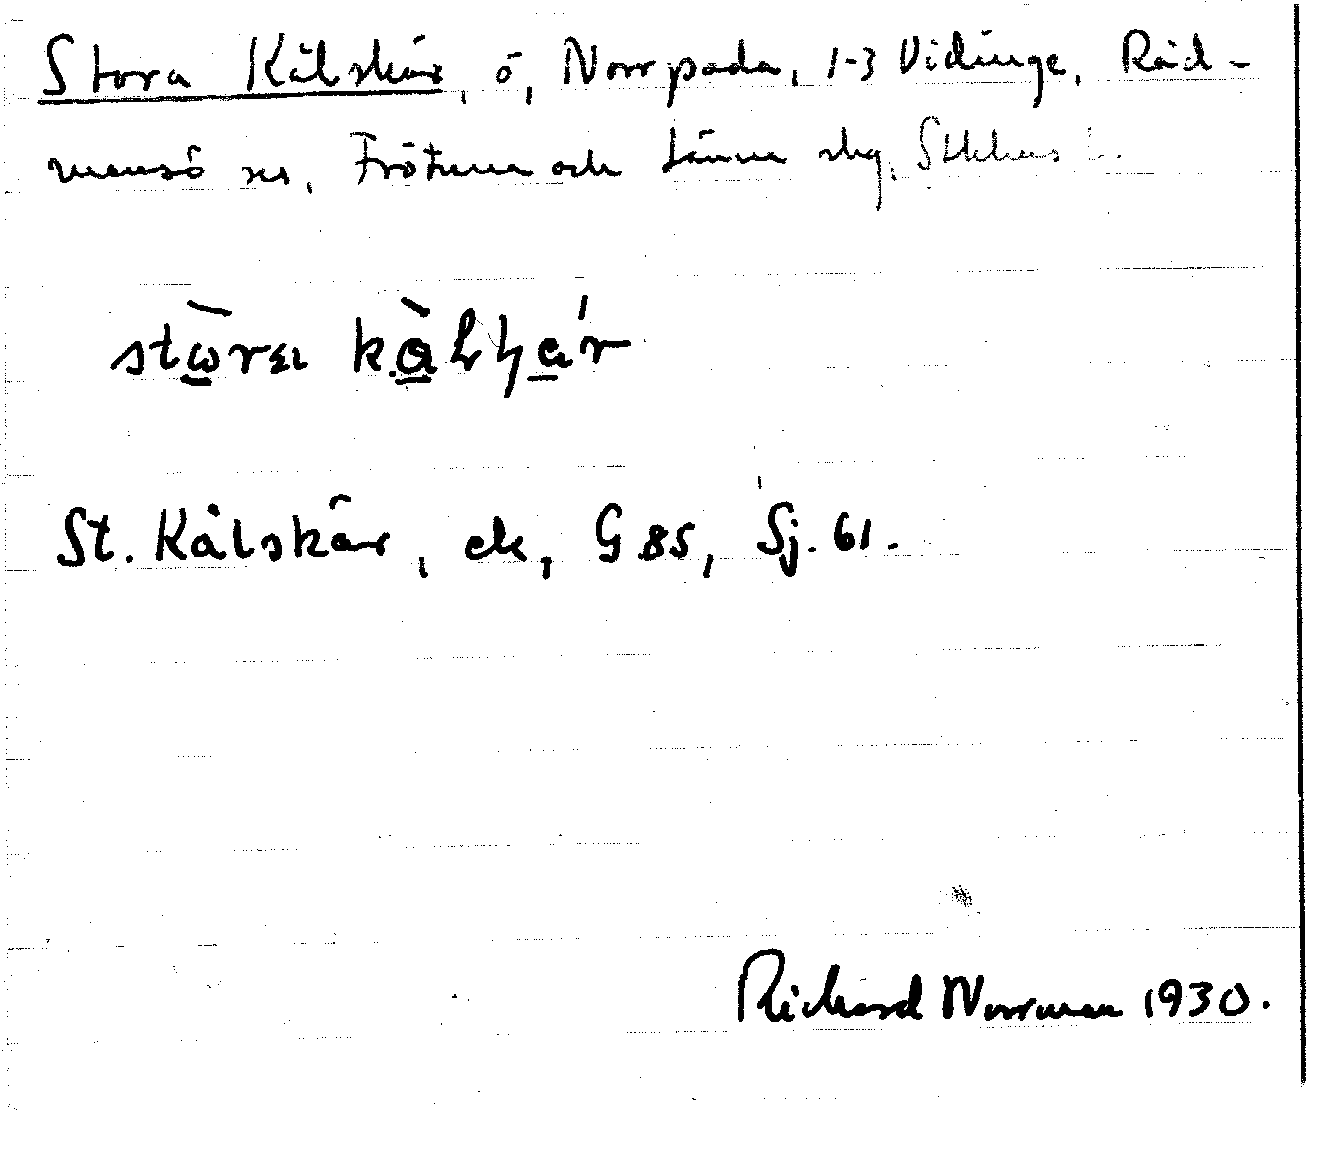 Stora Kålskär, ö, Norrpada, 1-3 Vidinge, Råd-
mansö sn, Frötuna och Länna skg, Sthlms l.
St. Kålskär, ek, G 85, Sj. 61.
Richard Norrman 1930.